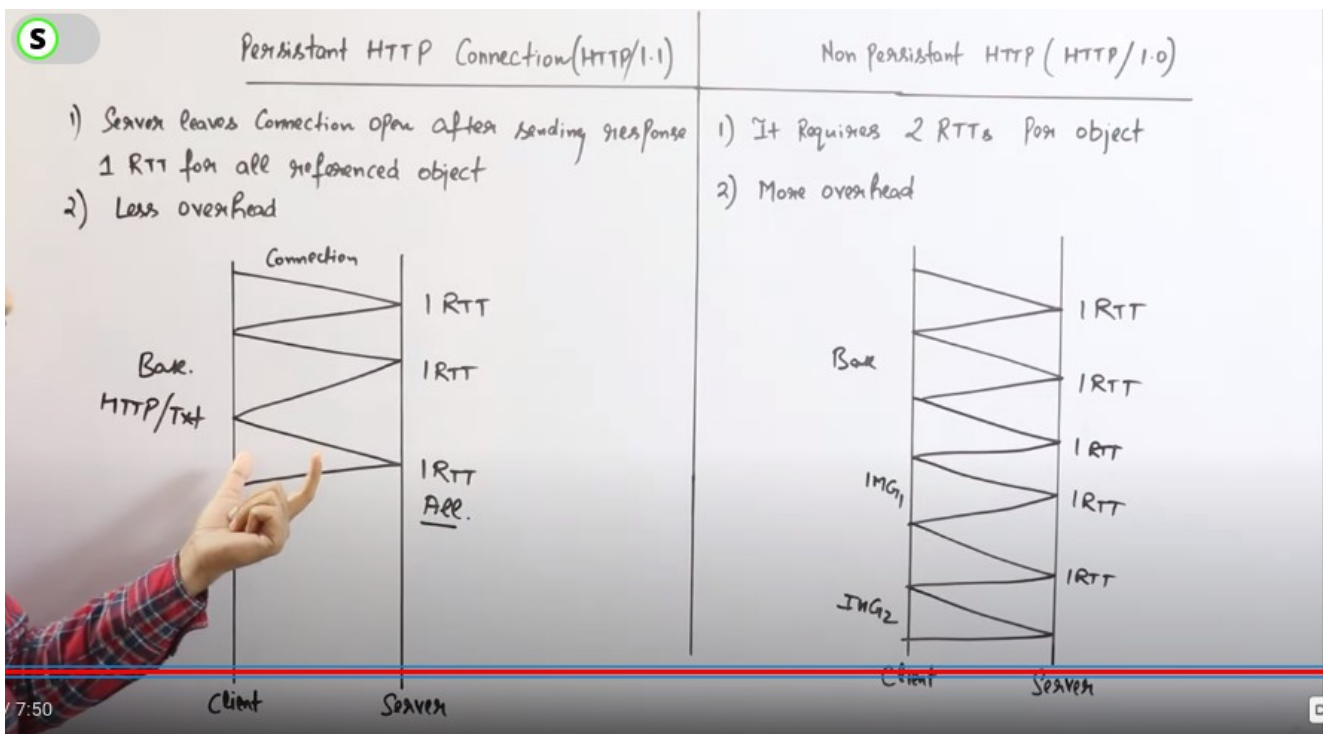 S
Persistant HTTP Connection (HTTP/1.1)
1) Server leaves Connection open after sending response
1 RTT for all referenced object
2) Less overhead
Connection
1 RTT
1 RTT
Base.
HTTP/Txt
1 RTT
All.
Client
Server
Non Persistant HTTP (HTTP/1.0)
1) It Requires 2 RTTs Per object
2) More overhead
1 RTT
Base
1 RTT
1 RTT
IMG1
1 RTT
1 RTT
IMG2
Client
Server
/ 7:50